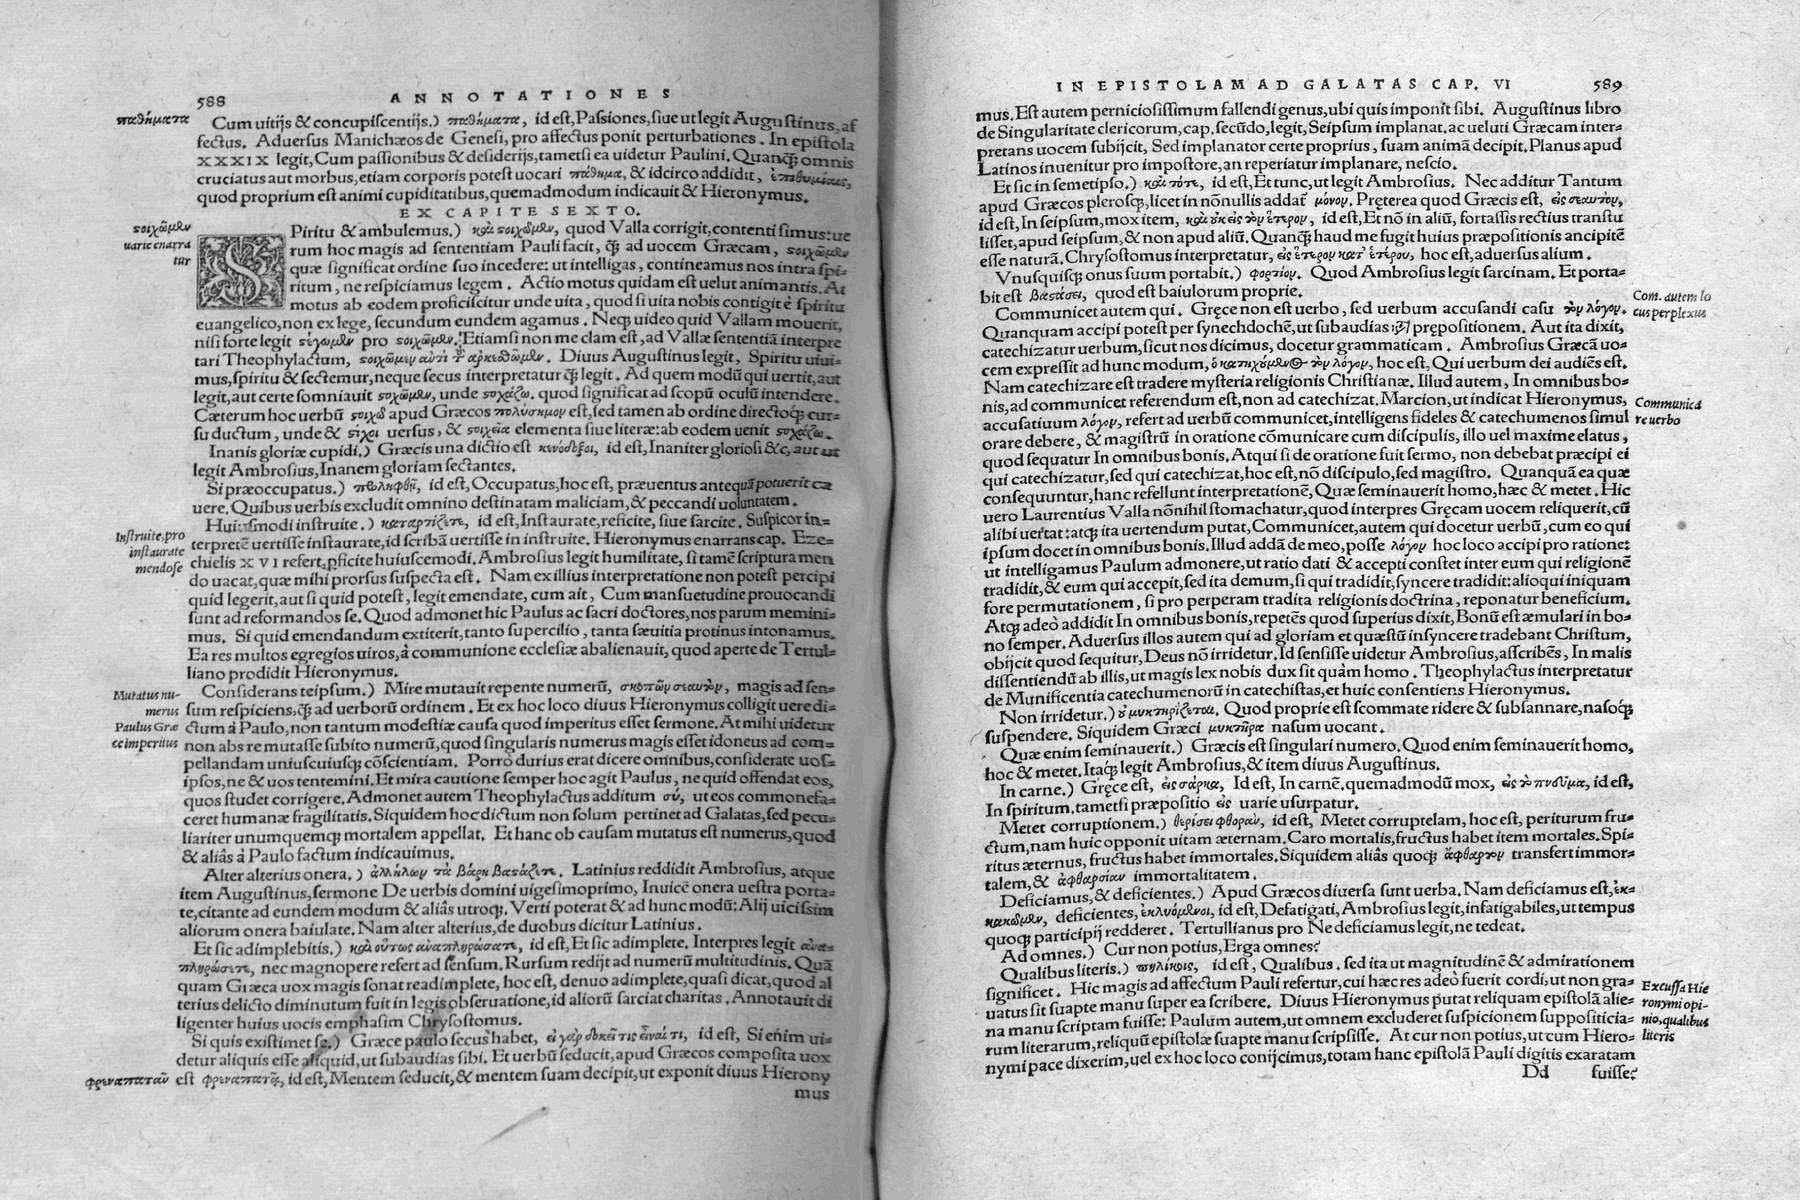 588
ANNOTATIONES
παθήματα
Cum uitijs & concupiscentijs.) παθήματα, id est, Passiones, siue ut legit Augustinus, af
fectus. Aduersus Manichæos de Genesi, pro affectus ponit perturbationes. In epistola
XXXIX legit, Cum passionibus & desiderijs, tametsi ea uidetur Paulini. Quanq̃ omnis
cruciatus aut morbus, etiam corporis potest uocari πάθημα, & idcirco addidit, ἐπιθυμίαις,
quod proprium est animi cupiditatibus, quemadmodum indicauit & Hieronymus.
EX CAPITE SEXTO.
σοιχῶμεν
uarie enarra
tur
SPiritu & ambulemus.) καὶ σοιχῶμεν, quod Valla corrigit, contenti simus: ue
rum hoc magis ad sententiam Pauli facit, q̃ ad uocem Græcam, σοιχῶμεν
quæ significat ordine suo incedere: ut intelligas, contineamus nos intra spi-
ritum, ne respiciamus legem. Actio motus quidam est uelut animantis. At
motus ab eodem proficiscitur unde uita, quod si uita nobis contigit è spiritu
euangelico, non ex lege, secundum eundem agamus. Neq; uideo quid Vallam mouerit,
nisi forte legit σέγωμεν pro σοιχῶμεν. Etiamsi non me clam est, ad Vallæ sententiã interpre
tari Theophylactum, σοιχῶμεν αὐτῇ ἀρκεθῶμεν. Diuus Augustinus legit, Spiritu uiui-
mus, spiritu & sectemur, neque secus interpretatur q̃ legit. Ad quem modũ qui uertit, aut
legit, aut certe somniauit σοχῶμεν, unde σοχάζω. quod significat ad scopũ oculũ intendere.
Cæterum hoc uerbũ σοιχῶ apud Græcos πολύσημον est, sed tamen ab ordine directoq; cur-
su ductum, unde & σίχοι uersus, & σοιχεῖα elementa siue literæ: ab eodem uenit σοχάζω.
Inanis gloriæ cupidi.) Græcis una dictio est κενόδοξοι, id est, Inaniter gloriosi &c, aut ut
legit Ambrosius, Inanem gloriam sectantes.
Si præoccupatus.) προληφθῇ, id est, Occupatus, hoc est, præuentus antequã potuerit ca
uere. Quibus uerbis excludit omnino destinatam maliciam, & peccandi uoluntatem.
Instruite, pro
instaurate
mendose
Huiusmodi instruite.) καταρτίζετε, id est, Instaurate, reficite, siue sarcite. Suspicor in-
terpretẽ uertisse instaurate, id scribã uertisse in instruite. Hieronymus enarrans cap. Eze-
chielis XVI refert, pficite huiuscemodi. Ambrosius legit humilitate, si tamẽ scriptura men
do uacat, quæ mihi prorsus suspecta est. Nam ex illius interpretatione non potest percipi
quid legerit, aut si quid potest, legit emendate, cum ait, Cum mansuetudine prouocandi
sunt ad reformandos se. Quod admonet hic Paulus ac sacri doctores, nos parum memini-
mus. Si quid emendandum extiterit, tanto supercilio, tanta sæuitia protinus intonamus.
Ea res multos egregios uiros, à communione ecclesiæ abalienauit, quod aperte de Tertul-
liano prodidit Hieronymus.
Mutatus nu-
merus
Paulus Græ
ce imperitus
Considerans teipsum.) Mire mutauit repente numerũ, σκοπῶν σεαυτὸν, magis ad sen-
sum respiciens, q̃ ad uerborũ ordinem. Et ex hoc loco diuus Hieronymus colligit uere di-
ctum à Paulo, non tantum modestiæ causa quod imperitus esset sermone. At mihi uidetur
non abs re mutasse subito numerũ, quod singularis numerus magis esset idoneus ad com-
pellandam uniuscuiusq; cõscientiam. Porrò durius erat dicere omnibus, considerate uos-
ipsos, ne & uos tentemini. Et mira cautione semper hoc agit Paulus, ne quid offendat eos,
quos studet corrigere. Admonet autem Theophylactus additum σύ, ut eos commonefa-
ceret humanæ fragilitatis. Siquidem hoc dictum non solum pertinet ad Galatas, sed pecu-
liariter unumquemq; mortalem appellat. Et hanc ob causam mutatus est numerus, quod
& aliâs à Paulo factum indicauimus.
Alter alterius onera.) ἀλλήλων τὰ βάρη βαστάζετε. Latinius reddidit Ambrosius, atque
item Augustinus, sermone De uerbis domini uigesimoprimo, Inuicẽ onera uestra porta-
te, citante ad eundem modum & aliâs utroq;. Verti poterat & ad hunc modũ: Alij uicissim
aliorum onera baiulate. Nam alter alterius, de duobus dicitur Latinius.
Et sic adimplebitis.) καὶ οὕτως ἀναπληρώσατε, id est, Et sic adimplete. Interpres legit ἀνα-
πληρώσετε, nec magnopere refert ad sensum. Rursum redijt ad numerũ multitudinis. Quã
quam Græca uox magis sonat readimplete, hoc est, denuo adimplete, quasi dicat, quod al
terius delicto diminutum fuit in legis obseruatione, id aliorũ sarciat charitas. Annotauit di
ligenter huius uocis emphasim Chrysostomus.
Si quis existimet se.) Græce paulo secus habet, εἰ γὰρ δοκεῖ τις εἶναί τι, id est, Si enim ui-
detur aliquis esse aliquid, ut subaudias sibi. Et uerbũ seducit, apud Græcos composita uox
φρεναπατᾶν
est φρεναπατᾷ, id est, Mentem seducit, & mentem suam decipit, ut exponit diuus Hierony
mus
IN EPISTOLAM AD GALATAS CAP. VI
589
mus. Est autem perniciosissimum fallendi genus, ubi quis imponit sibi. Augustinus libro
de Singularitate clericorum, cap. secũdo, legit, Seipsum implanat. ac ueluti Græcam inter-
pretans uocem subijcit, Sed implanator certe proprius, suam animã decipit. Planus apud
Latinos inuenitur pro impostore, an reperiatur implanare, nescio.
Et sic in semetipso.) καὶ τότε, id est, Et tunc, ut legit Ambrosius. Nec additur Tantum
apud Græcos plerosq;, licet in nõnullis addat̃ μόνον. Pręterea quod Græcis est, εἰς σεαυτὸν,
id est, In seipsum, mox item, καὶ οὐκ εἰς τὸν ἕτερον, id est, Et nõ in aliũ, fortassis rectius transtu
lisset, apud seipsum, & non apud aliũ. Quanq̃ haud me fugit huius præpositionis ancipitẽ
esse naturã. Chrysostomus interpretatur, εἰς ἕτερον κατ᾽ ἑτέρου, hoc est, aduersus alium.
Vnusquisq; onus suum portabit.) φορτίον. Quod Ambrosius legit sarcinam. Et porta-
bit est βαστάσει, quod est baiulorum proprie.
Com. autem lo
cus perplexus
Communicet autem qui. Gręce non est uerbo, sed uerbum accusandi casu τὸν λόγον.
Quanquam accipi potest per synechdochẽ, ut subaudias præpositionem. Aut ita dixit,
catechizatur uerbum, sicut nos dicimus, docetur grammaticam. Ambrosius Græcã uo-
cem expressit ad hunc modum, ὁ κατηχούμενος τὸν λόγον, hoc est, Qui uerbum dei audiẽs est.
Nam catechizare est tradere mysteria religionis Christianæ. Illud autem, In omnibus bo-
Communica
re uerbo
nis, ad communicet referendum est, non ad catechizat. Marcion, ut indicat Hieronymus,
accusatiuum λόγον, refert ad uerbũ communicet, intelligens fideles & catechumenos simul
orare debere, & magistrũ in oratione cõmunicare cum discipulis, illo uel maxime elatus,
quod sequatur In omnibus bonis. Atqui si de oratione fuit sermo, non debebat præcipi ei
qui catechizatur, sed qui catechizat, hoc est, nõ discipulo, sed magistro. Quanquã ea quæ
consequuntur, hanc refellunt interpretationẽ, Quæ seminauerit homo, hæc & metet. Hic
uero Laurentius Valla nõnihil stomachatur, quod interpres Gręcam uocem reliquerit, cũ
alibi uertat: atq; ita uertendum putat, Communicet, autem qui docetur uerbũ, cum eo qui
ipsum docet in omnibus bonis. Illud addã de meo, posse λόγον hoc loco accipi pro ratione:
ut intelligamus Paulum admonere, ut ratio dati & accepti constet inter eum qui religionẽ
tradidit, & eum qui accepit, sed ita demum, si qui tradidit, syncere tradidit: alioqui iniquam
fore permutationem, si pro perperam tradita religionis doctrina, reponatur beneficium.
Atq; adeò addidit In omnibus bonis, repetẽs quod superius dixit, Bonũ est æmulari in bo-
no semper. Aduersus illos autem qui ad gloriam et quæstũ insyncere tradebant Christum,
obijcit quod sequitur, Deus nõ irridetur. Id sensisse uidetur Ambrosius, ascribẽs, In malis
dissentiendũ ab illis, ut magis lex nobis dux sit quàm homo. Theophylactus interpretatur
de Munificentia catechumenorũ in catechistas, et huic consentiens Hieronymus.
Non irridetur.) οὐ μυκτηρίζεται. Quod proprie est scommate ridere & subsannare, nasoq;
suspendere. Siquidem Græci μυκτῆρα nasum uocant.
Quæ enim seminauerit.) Græcis est singulari numero. Quod enim seminauerit homo,
hoc & metet. Itaq; legit Ambrosius, & item diuus Augustinus.
In carne.) Gręce est, εἰς σάρκα, Id est, In carnẽ. quemadmodũ mox, εἰς τὸ πνεῦμα, id est,
In spiritum. tametsi præpositio εἰς uarie usurpatur.
Metet corruptionem.) θερίσει φθορὰν, id est, Metet corruptelam, hoc est, periturum fru-
ctum, nam huic opponit uitam æternam. Caro mortalis, fructus habet item mortales. Spi-
ritus æternus, fructus habet immortales. Siquidem aliâs quoq; ἄφθαρτον transfert immor-
talem, & ἀφθαρσίαν immortalitatem.
Deficiamus, & deficientes.) Apud Græcos diuersa sunt uerba. Nam deficiamus est, ἐκ-
κακῶμεν, deficientes, ἐκλυόμενοι, id est, Defatigati, Ambrosius legit, infatigabiles, ut tempus
quoq; participij redderet. Tertullianus pro Ne deficiamus legit, ne tedeat.
Ad omnes.) Cur non potius, Erga omnes?
Qualibus literis.) πηλίκοις, id est, Qualibus. sed ita ut magnitudinẽ & admirationem
Excussa Hie
ronymi opi-
nio, qualibus
literis
significet. Hic magis ad affectum Pauli refertur, cui hæc res adeò fuerit cordi, ut non gra-
uatus sit suapte manu super ea scribere. Diuus Hieronymus putat reliquam epistolã alie-
na manu scriptam fuisse: Paulum autem, ut omnem excluderet suspicionem suppositicia-
rum literarum, reliquũ epistolæ suapte manu scripsisse. At cur non potius, ut cum Hiero-
nymi pace dixerim, uel ex hoc loco conijcimus, totam hanc epistolã Pauli digitis exaratam
Dd
fuisse?